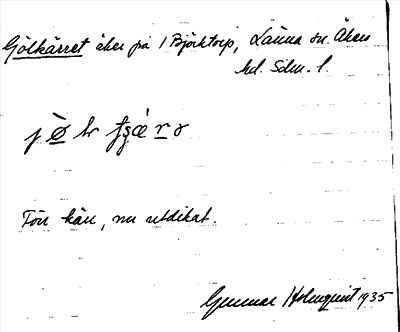 Gölkärret åker på 1 Björktorp, Länna sn. Åkers
hd. Sdm. l.
Förr kärr, nu utdikat.
Gunnar Holmquist 1935